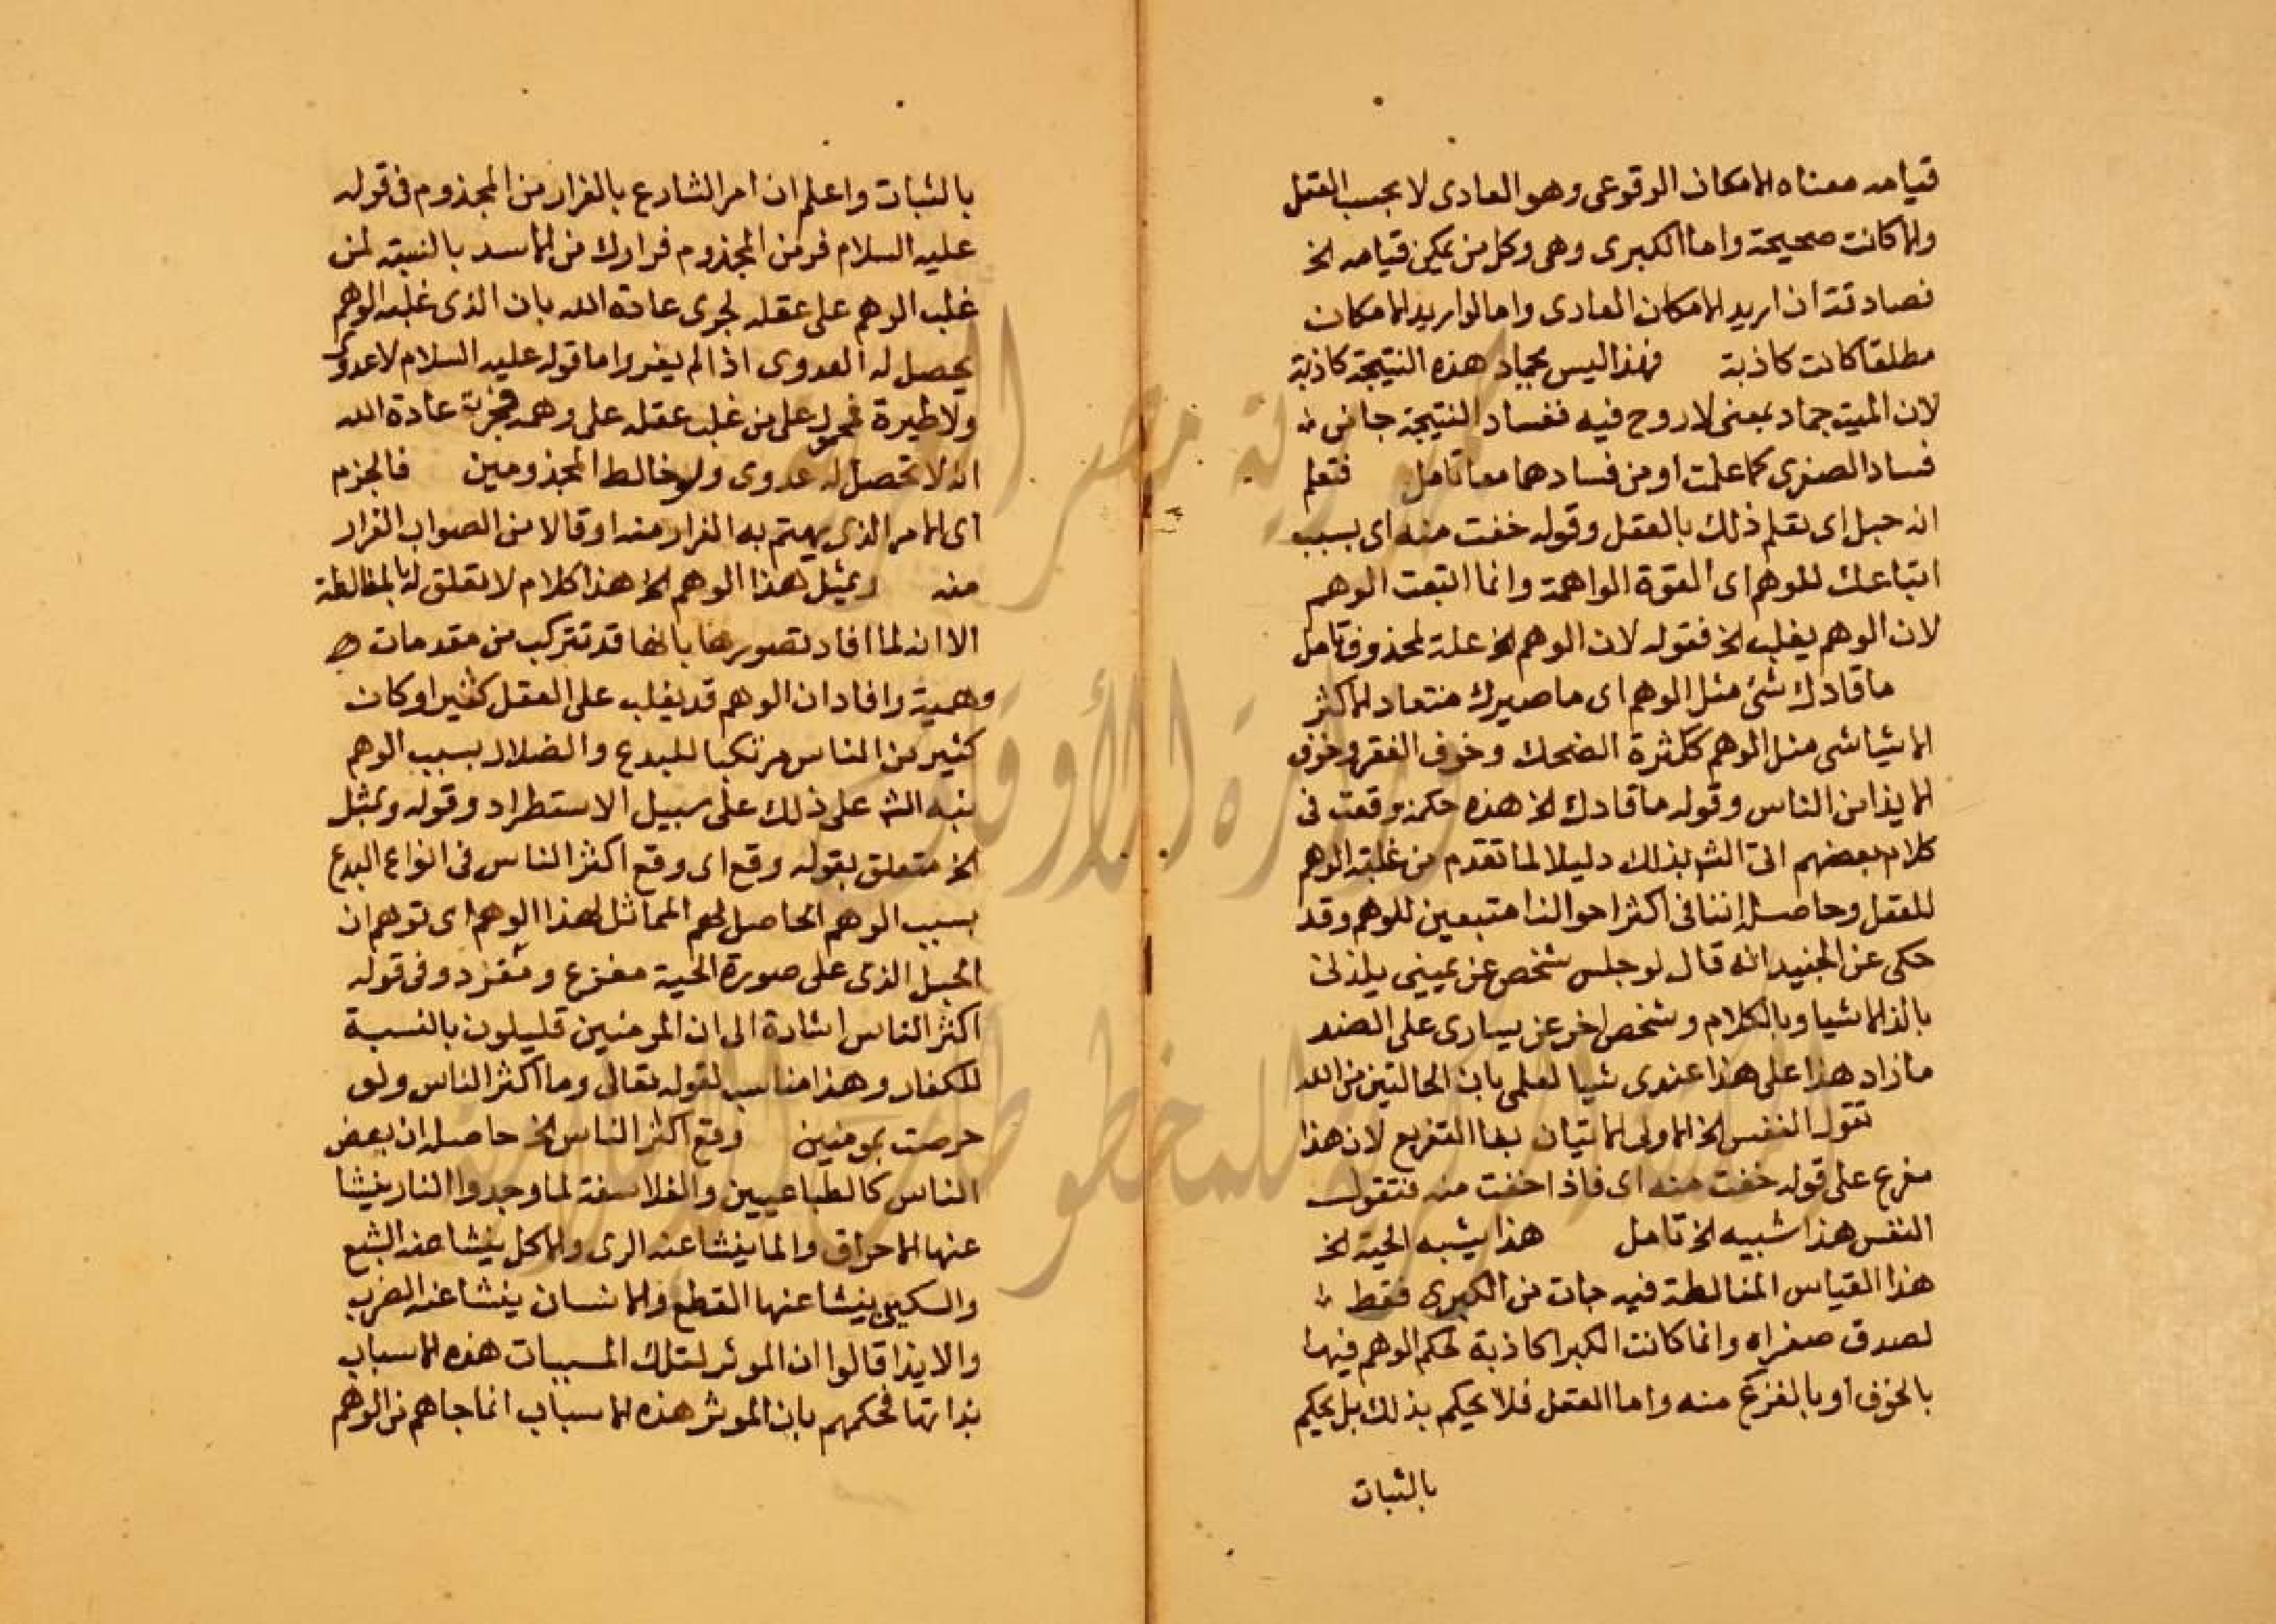 قيامه معناه الامكان الوقوعى وهو العادى لا بحسب العقل
والا كانت صحيحة واما الكبرى وهى وكل من يمكن قيامه الخ
فصادقة ان اريد الامكان العادى واما لو اريد الامكان
مطلقا كانت كاذبة فهذا ليس بجماد هذه النتيجة كاذبة
لان الميت جماد بمعنى لا روح فيه ففساد النتيجة جا من
فساد الصغرى كما علمت او من فسادهما معا تامل فتعلم
انه حبل اى تعلم ذلك بالعقل وقوله خفت منه اى بسبب
اتباعك للوهم اى القوة الواهمة وانما اتبعت الوهم
لان الوهم يغلب الخ فقوله لان الوهم الخ علة لمحذوف تامل
ما قادك شئ مثل الوهم اى ما صيرك منقاد لاكثر
الاشيا شى مثل الوهم ككثرة الضحك وخوف الفقر وخوف
الايذا من الناس وقوله ما قادك الخ هذه حكمة وقعت فى
كلام بعضهم اتى الش بذلك دليلا لما تقدم من غلبة الوهم
للعقل وحاصله اننا فى اكثر احوالنا متبعين للوهم وقد
حكى عن الجنيد انه قال لو جلس شخص عن يمينى يلذذنى
بالذ الاشيا وبالكلام وشخص اخر عن يسارى على الضد
ما زاد هذا على هذا عندى شيا لعلمى بان الحالتين من الله
تقول النفس الخ الاولى الاتيان بفا التفريع لان هذا
مفرع على قوله خفت منه اى فاذا خفت منه فتقول
النفس هذا شبيه الخ تامل هذا يشبه الحية الخ
هذا القياس المغالطة فيه جات من الكبرى فقط
لصدق صغراه وانما كانت الكبرا كاذبة لحكم الوهم فيها
بالخوف او بالفزع منه واما العقل فلا يحكم بذلك بل يحكم
بالثبات
بالثبات واعلم ان امر الشارع بالفرار من المجذوم فى قوله
عليه السلام فر من المجذوم فرارك من الاسد بالنسبة لمن
غلب الوهم على عقله لجرى عادة الله بان الذى غلبه الوهم
يحصل له العدوى اذا لم يفر واما قوله عليه السلام لا عدوى
ولا طيرة فمحمول على من غلب عقله على وهمه فجرت عادة الله
انه لا تحصل له عدوى ولو خالط المجذومين فالجزم
اى الامر الذى يهتم به الفرار منه او قالا من الصواب الفرار
منه وبمثل هذا الوهم الخ هذا كلام لا تعلق له بالمغالطة
الا انه لما افاد تصويرها بانها قد تتركب من مقدمات
وهمية وافاد ان الوهم قد يغلب على العقل كثيرا وكان
كثير من الناس مرتكبا للبدع والضلال بسبب الوهم
نبه الش على ذلك على سبيل الاستطراد وقوله وبمثل
الخ متعلق بقوله وقع اى وقع اكثر الناس فى انواع البدع
بسبب الوهم الحاصل لهم المماثل لهذا الوهم اى توهم ان
الحبل الذى على صورة الحية مفزع وفى قوله
اكثر الناس اشارة الى ان المومنين قليلون بالنسبة
للكفار وهذا مناسب لقوله تعالى وما اكثر الناس ولو
حرصت بمومنين وقع اكثر الناس الخ حاصله ان بعض
الناس كالطباعيين والفلاسفة لما وجدوا النار ينشا
عنها الاحراق والما ينشا عنه الرى والاكل ينشا عنه الشبع
والسكين ينشا عنها القطع والانسان ينشا عنه الضرب
والايذا قالوا ان الموثر لتلك المسببات هذه الاسباب
بذاتها فحكمهم بان الموثر هذه الاسباب انما جاهم من الوهم